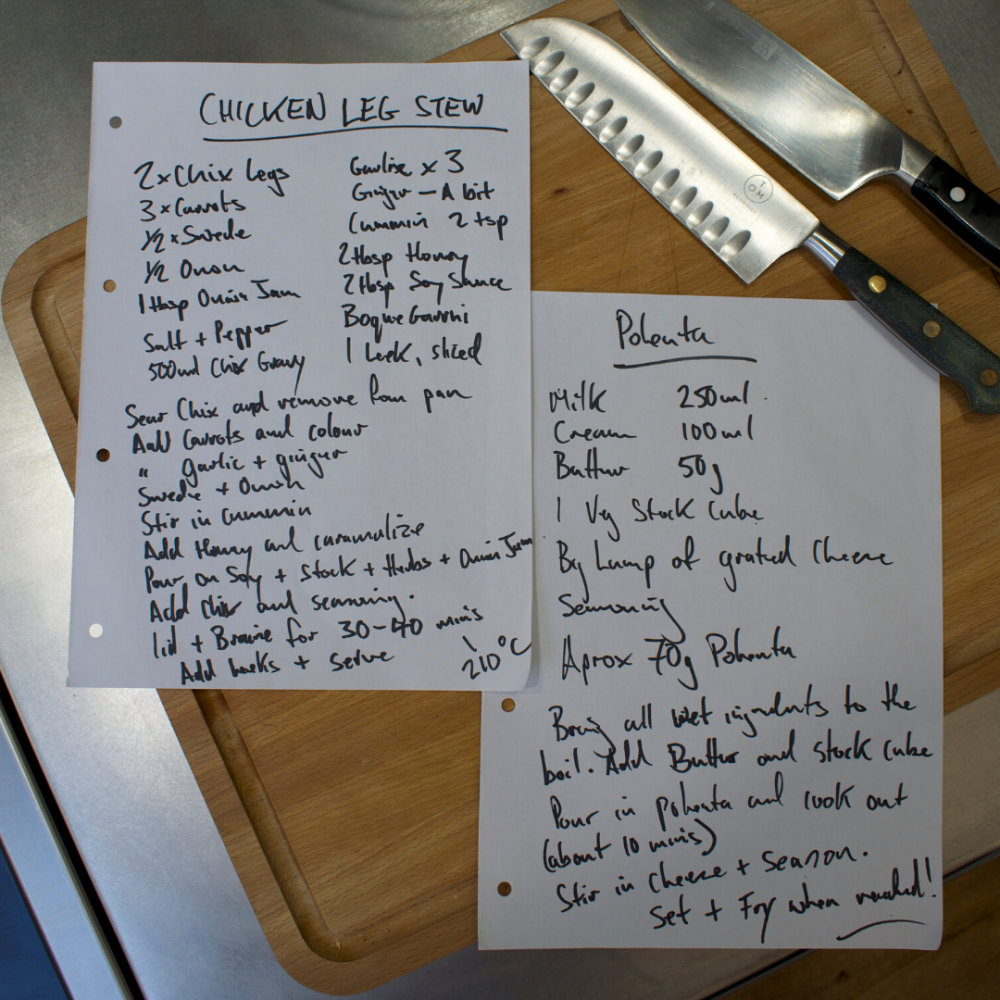 CHICKEN LEG STEW
2 x Chix Legs
3 x Carrots
1/2 x Swede
1/2 Onion
1 tbsp Onion Jam
Salt + Pepper
500ml Chix Gravy
Garlic x 3
Ginger — A bit
Cummin 2 tsp
2 tbsp Honey
2 tbsp Soy Sauce
Boque Garni
1 Leek, sliced
Sear Chix and remove from pan
Add Carrots and colour
" garlic + ginger
Swede + Onion
Stir in cummin
Add Honey and caramalize
Pour on Soy + Stock + Herbs + Onion Jam
Add Chix and seasoning.
lid + Braise for 30-40 mins
210°C
Add leeks + serve
TOM
Polenta
Milk 250ml
Cream 100ml
Butter 50g
1 Veg Stock Cube
Big Lump of grated Cheese
Seasoning
Aprox 70g Polenta
Bring all wet ingredients to the
boil. Add Butter and Stock Cube
Pour in polenta and cook out
(about 10 mins)
Stir in Cheese + Season.
Set + Fry when needed!